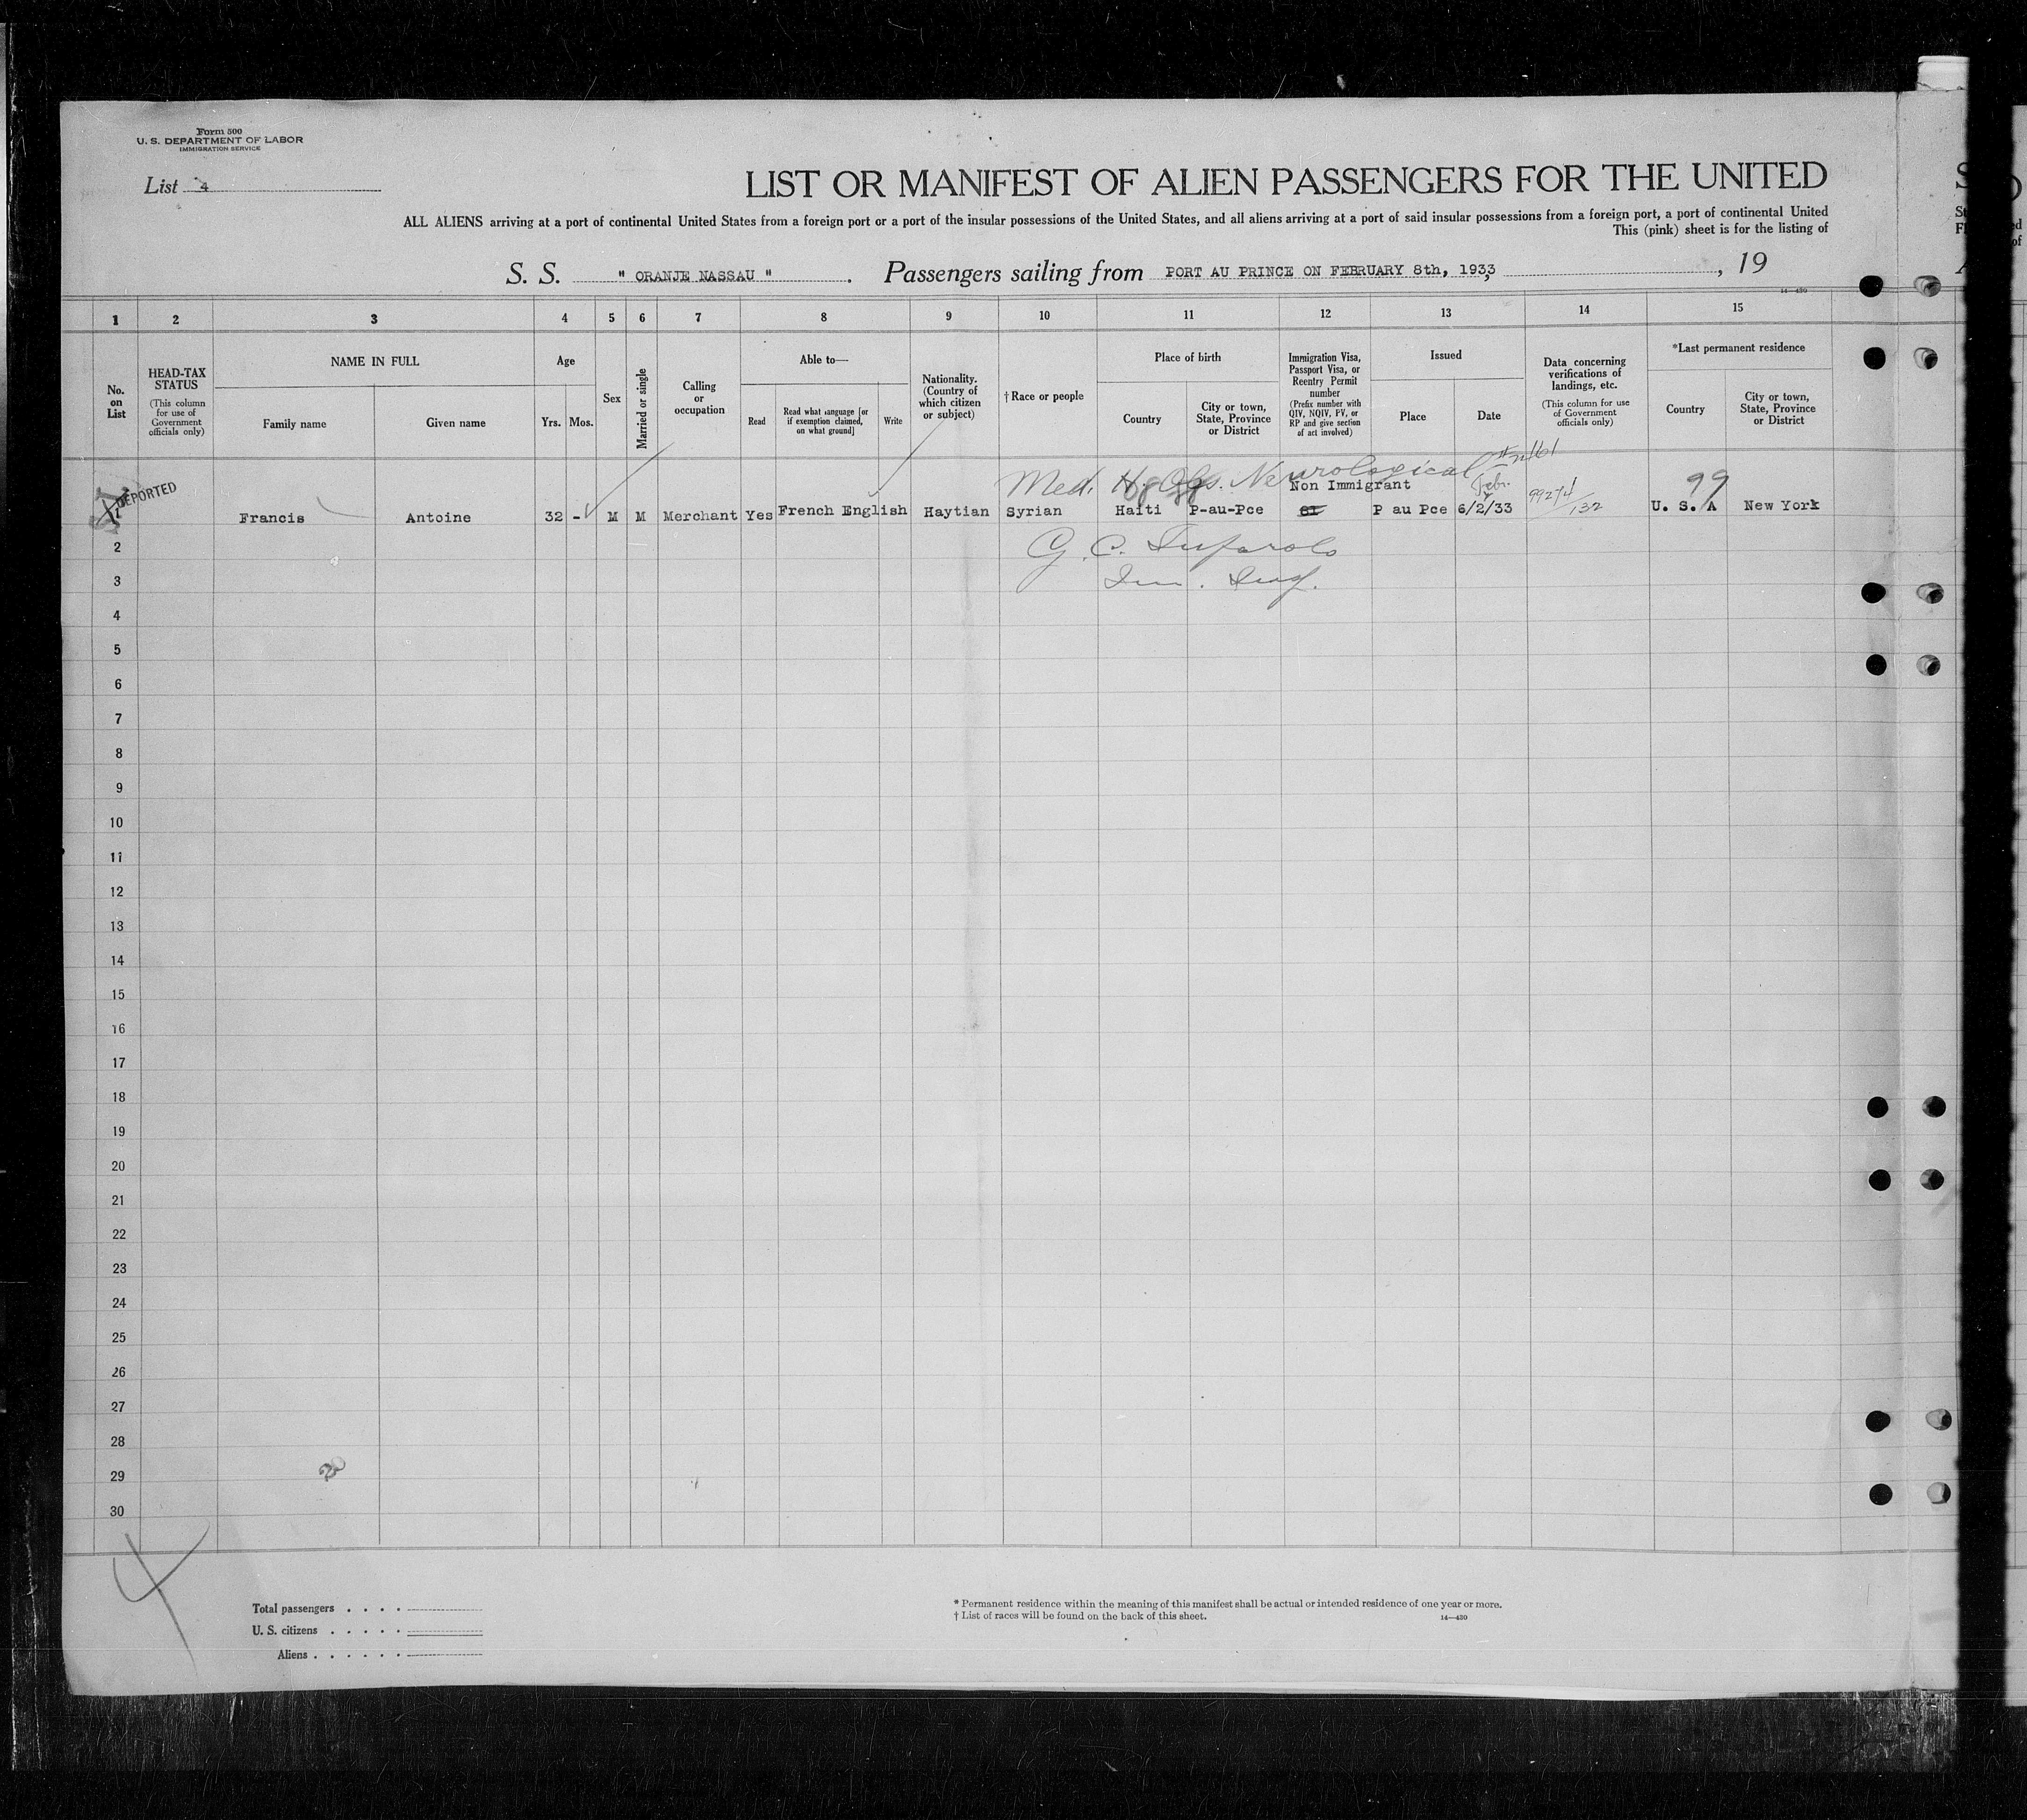 Form 500
U. S. DEPARTMENT OF LABOR
IMMIGRATION SERVICE
List 4
LIST OR MANIFEST OF ALIEN PASSENGERS FOR THE UNITED
ALL ALIENS arriving at a port of continental United States from a foreign port or a port of the insular possessions of the United States, and all aliens arriving at a port of said insular possessions from a foreign port, a port of continental United
This (pink) sheet is for the listing of
S. S. " ORANJE NASSAU ". Passengers sailing from PORT AU PRINCE ON FEBRUARY 8th, 1933, 19
14—430
1 2 3 4 5 6 7 8 9 10 11 12 13 14 15
No. on List
HEAD-TAX STATUS
(This column for use of Government officials only)
NAME IN FULL
Family name Given name
Age
Yrs. Mos.
Sex
Married or single
Calling or occupation
Able to—
Read
Read what language [or if exemption claimed, on what ground]
Write
Nationality. (Country of which citizen or subject)
† Race or people
Place of birth
Country
City or town, State, Province or District
Immigration Visa, Passport Visa, or Reentry Permit number
(Prefix number with QIV, NQIV, PV, or RP and give section of act involved)
Issued
Place Date
Data concerning verifications of landings, etc.
(This column for use of Government officials only)
*Last permanent residence
Country
City or town, State, Province or District
Med. Obs. Neurological
Non Immigrant Feb. 99
DEPORTED
Francis Antoine 32 - M M Merchant Yes French English Haytian Syrian Haiti P-au-Pce P au Pce 6/2/33 99274/132 U. S. A New York
2
G. C.
3
4
5
6
7
8
9
10
11
12
13
14
15
16
17
18
19
20
21
22
23
24
25
26
27
28
29
30
4
Total passengers . . . .
U. S. citizens . . . . .
Aliens . . . . . .
* Permanent residence within the meaning of this manifest shall be actual or intended residence of one year or more.
† List of races will be found on the back of this sheet.
14—430